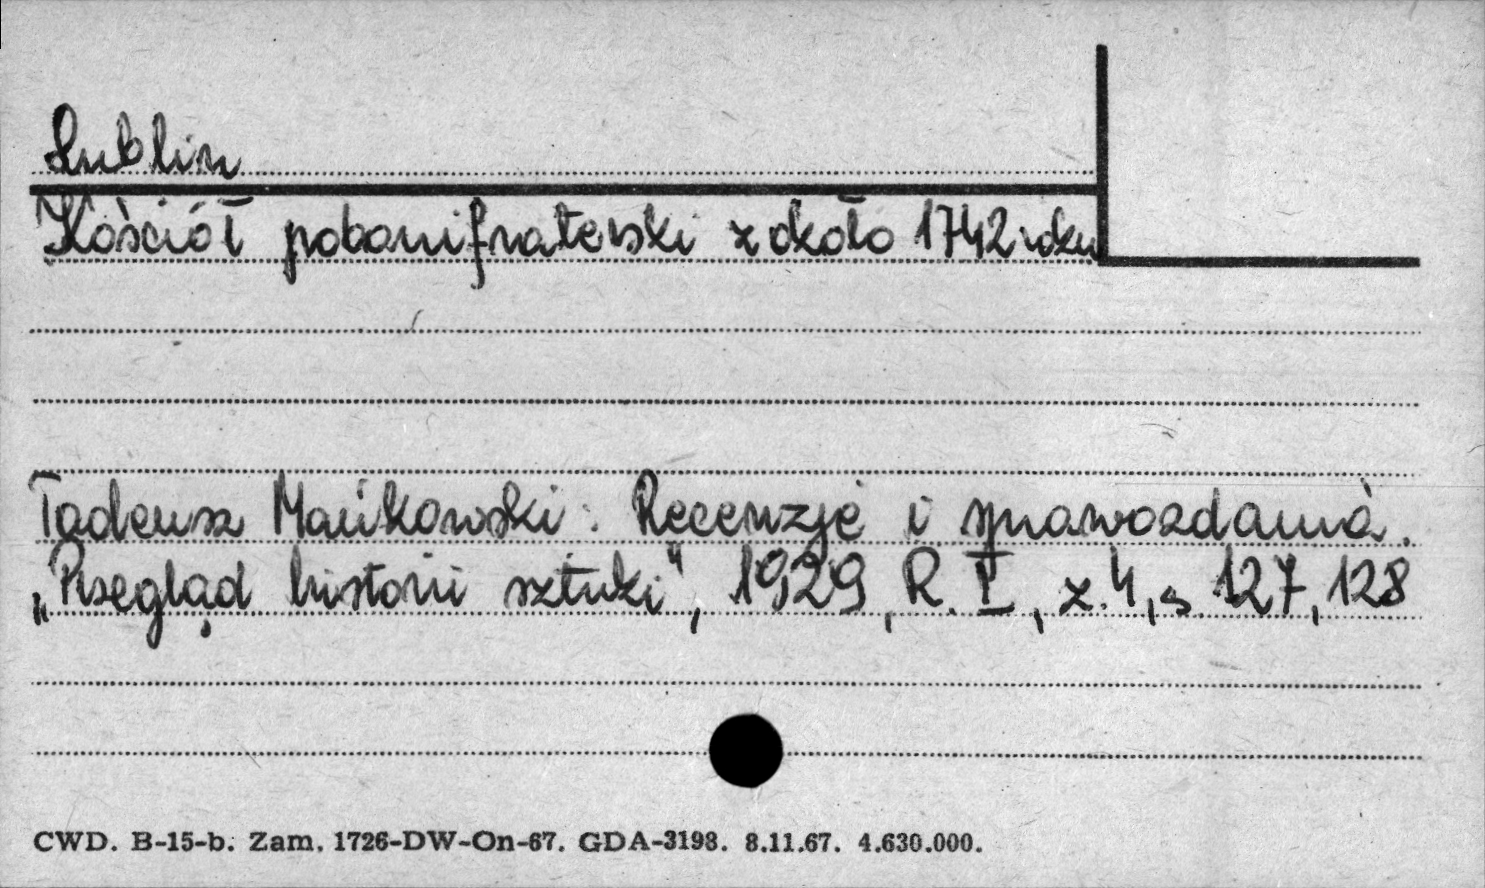 Lublin
Kościół pobonifraterski z około 1742 roku
Tadeusz Mańkowski: Recenzje i sprawozdania.
„Przegląd historii sztuki", 1929, R. I, z. 4, s. 127, 128
CWD. B-15-b. Zam. 1726-DW-On-67. GDA-3198. 8.11.67. 4.630.000.